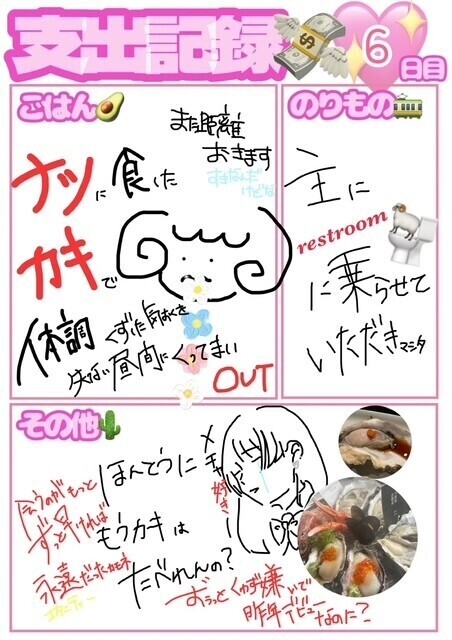 支出記録
6日目
ごはん
また距離
おきます
すきなんだ
けどな
ナツに食した
カキで
体調くずした気がくを
失ない昼間にくってまい
OUT
のりもの
主に
restroom
に乗らせて
いただきマシタ
その他
ほんとうに
もうカキは
たべれんの?
メチャ
好き
会うのがもっと
ずっと早ければ
永遠だったかもネ
エタニティー
ずうっとくわず嫌いで
昨年デビューなのに?